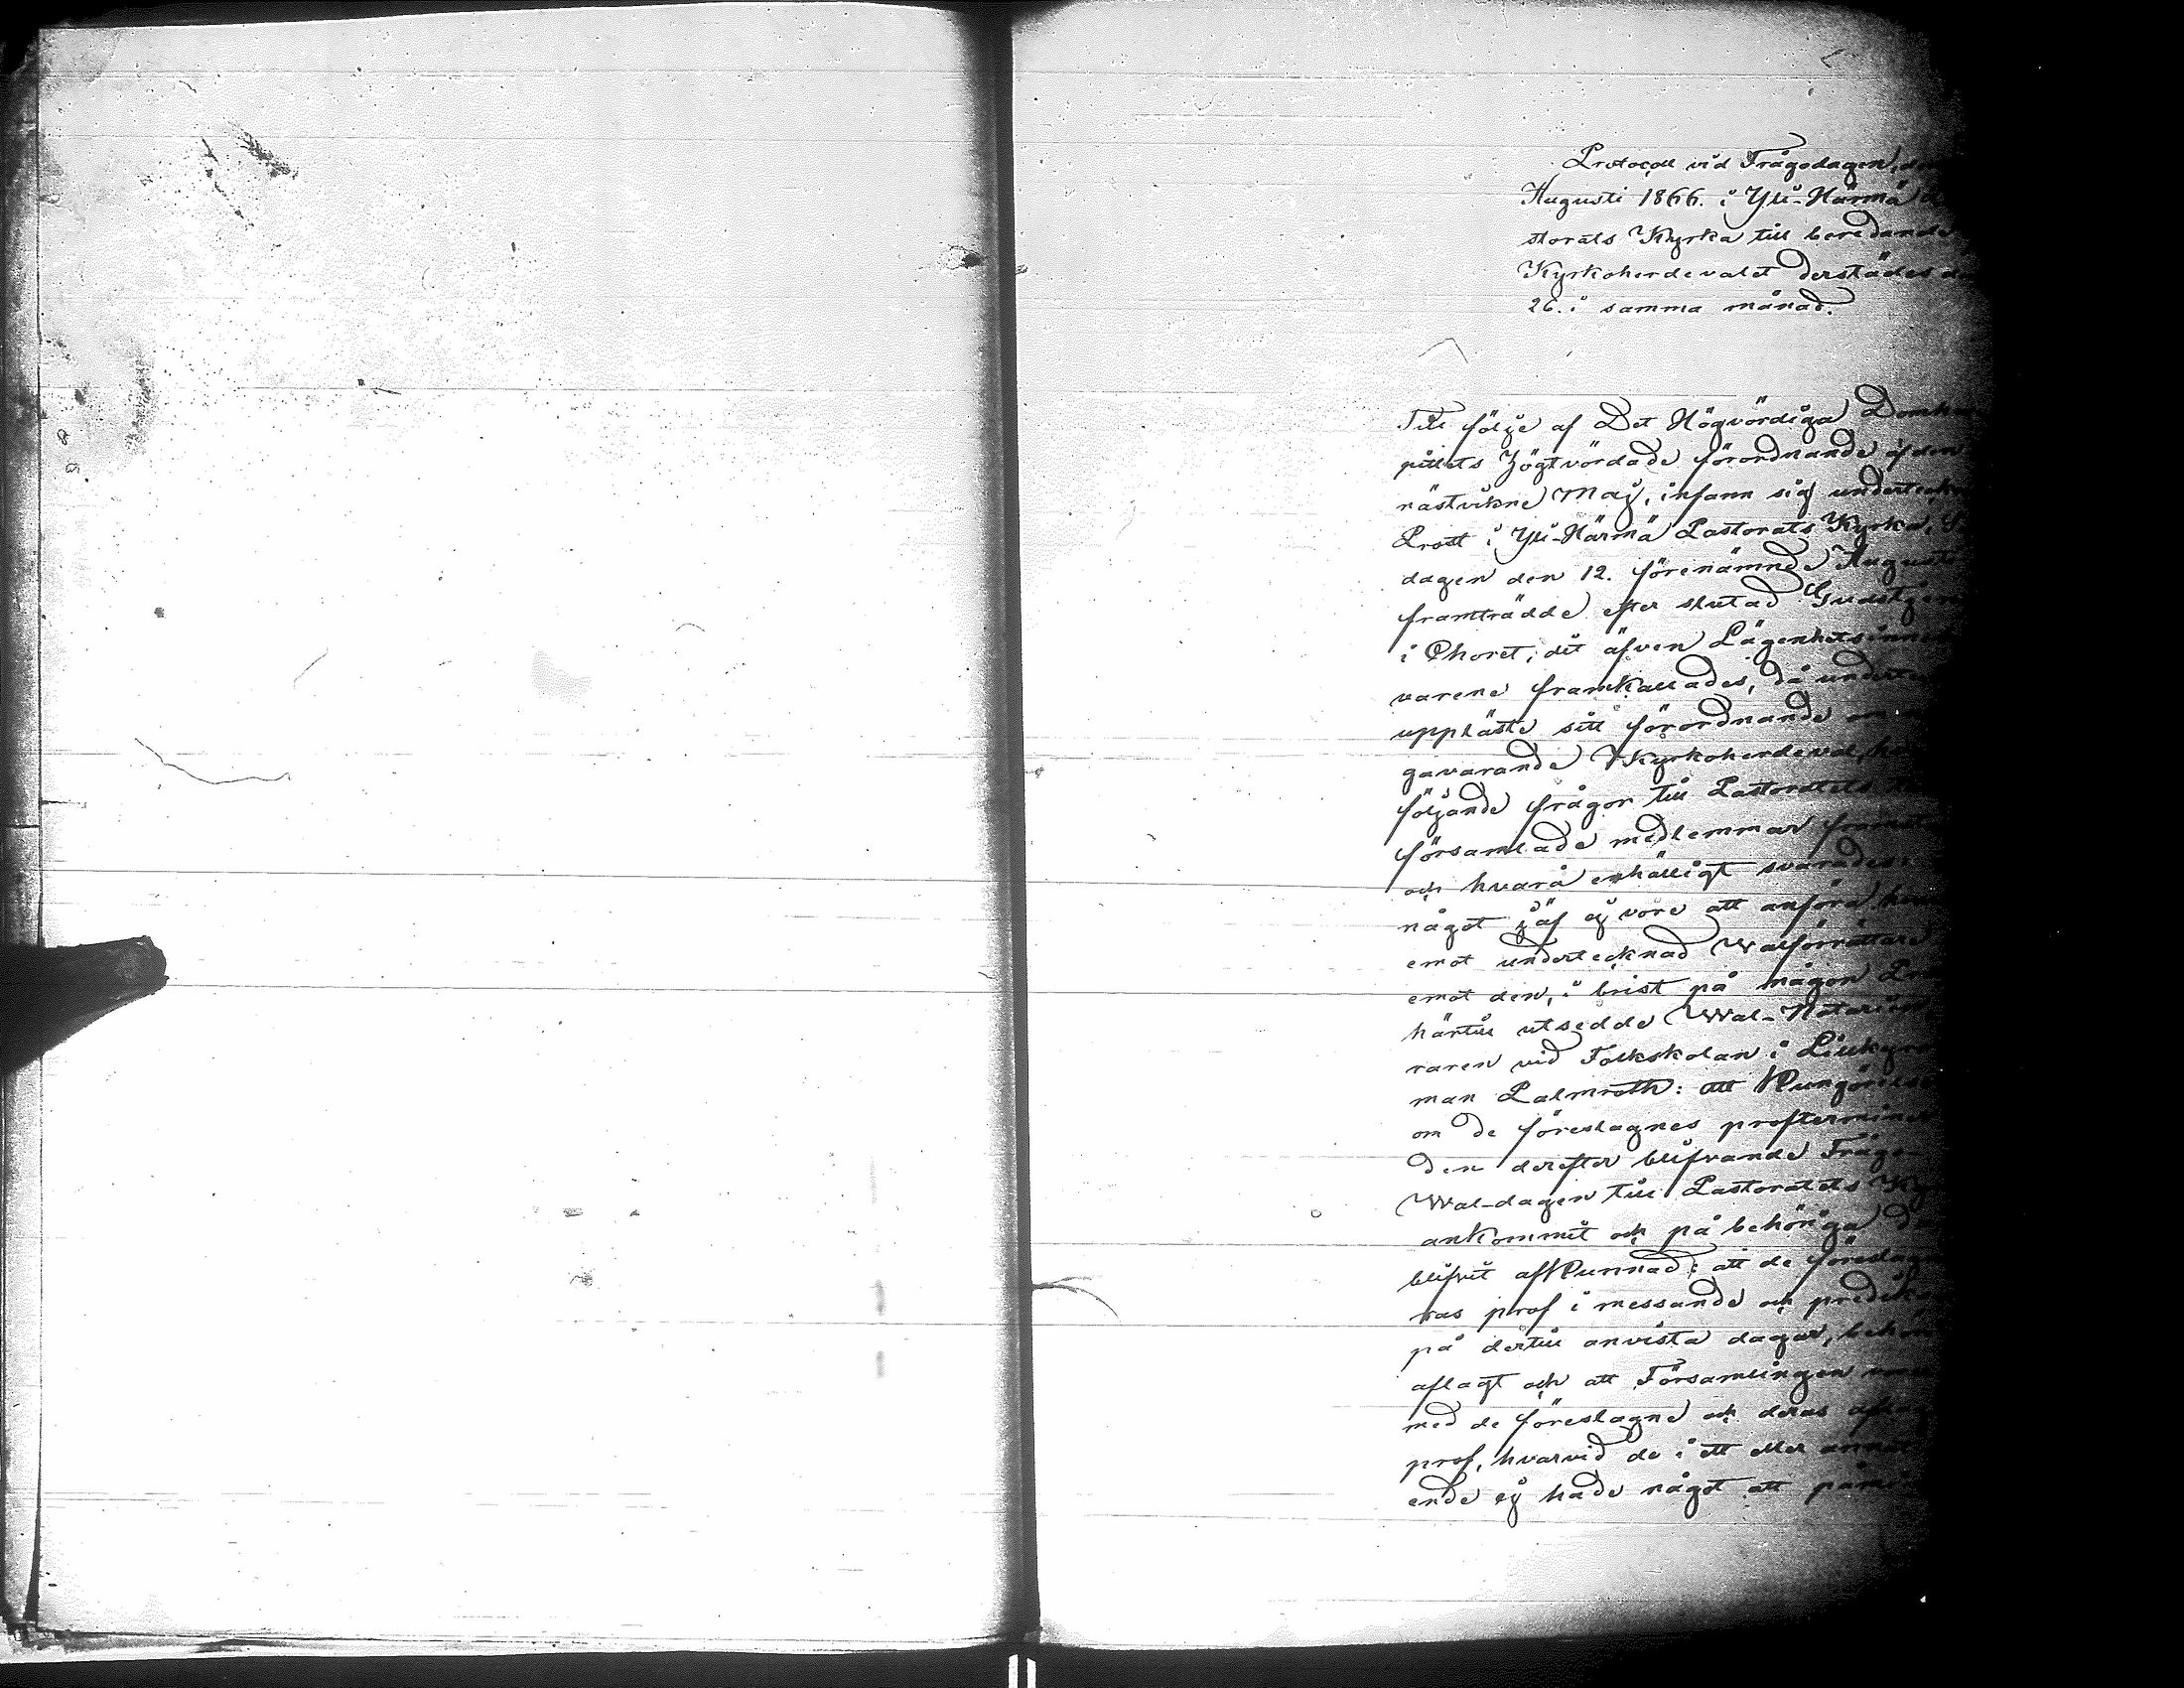 Protocoll vid Frågodagen, den
Augusti 1866. i Yli-Härmä
storats Kyrka till beredande
Kyrkoherdevalet derstädes
26. i samma månad.
Till följe af Det Högvördiga Domka
pitlets Högtvördade förordnande af den
nästvikne Maj, infann sig underteck
Prost i Yli-Härmä Pastorats Kyrka,
dagen den 12. förenämnde Augusti
framträdde efter slutad Gudstjen
i Choret, dit äfven Lägenhetsinne
varene framkallades, då underte
uppläste sitt förordnande om
gavarande Kyrkoherdeval,
följande frågor till Pastoratets
församlade medlemmar
och hvarå enhälligt svarades:
något jäf ej vore att anföra
emot undertecknad Walförrättare
emot den, i brist på någon
härtill utsedde Wal-Notarien
raren vid Folkskolan i Lillkyro
man Palmroth: att Kungörelse
om de föreslagnes profterminer
den derefter blifvande Fråge-
Wal-dagen till Pastoratets
ankommit och på behöriga
blifvit afkunnad: att de föreslag
ras prof i messande och predik
på dertill anvista dagar,
aflagt och att Församlingen
med de föreslagne och deras
prof, hvarvid de i ett eller annat
ende ej hade något att påm